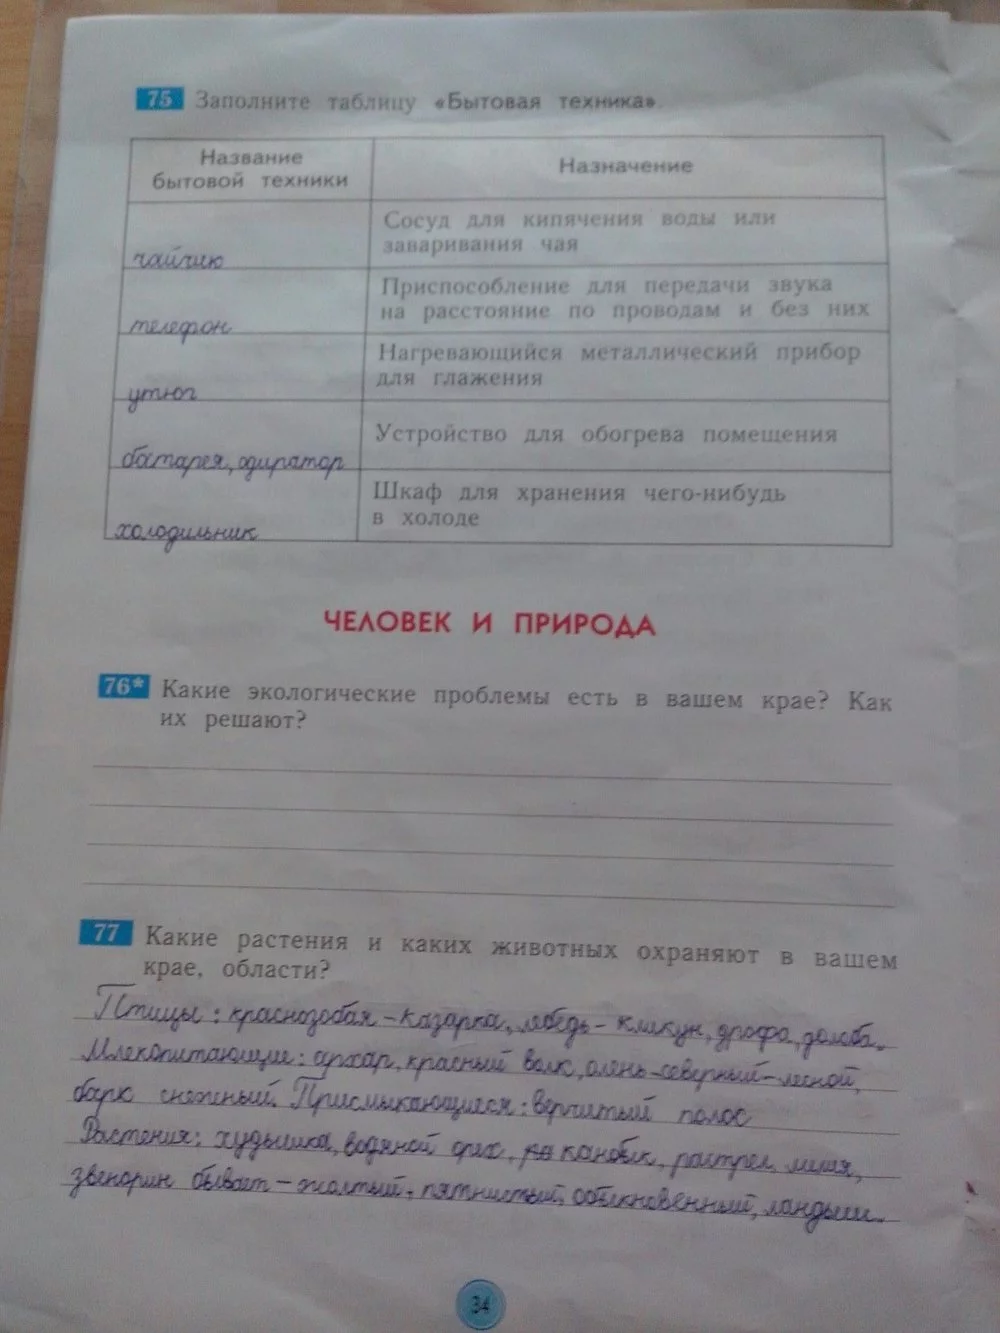 75 Заполните таблицу «Бытовая техника».
Название
бытовой техники
Назначение
чайчик
Сосуд для кипячения воды или
заваривания чая
телефон
Приспособление для передачи звука
на расстояние по проводам и без них
утюг
Нагревающийся металлический прибор
для глажения
батарея,
Устройство для обогрева помещения
холодильник
Шкаф для хранения чего-нибудь
в холоде
ЧЕЛОВЕК И ПРИРОДА
76* Какие экологические проблемы есть в вашем крае? Как
их решают?
77 Какие растения и каких животных охраняют в вашем
крае, области?
Птицы: краснозобая-казарка, лебедь-кликун, дрофа,
Млекопитающие: архар, красный волк, олень-северный-лесной,
барс снежный. Присмыкающиеся: полос
Растения: водяной орех,
бывает-жолтый, пятнистый, обыкновенный, ландыш.
34